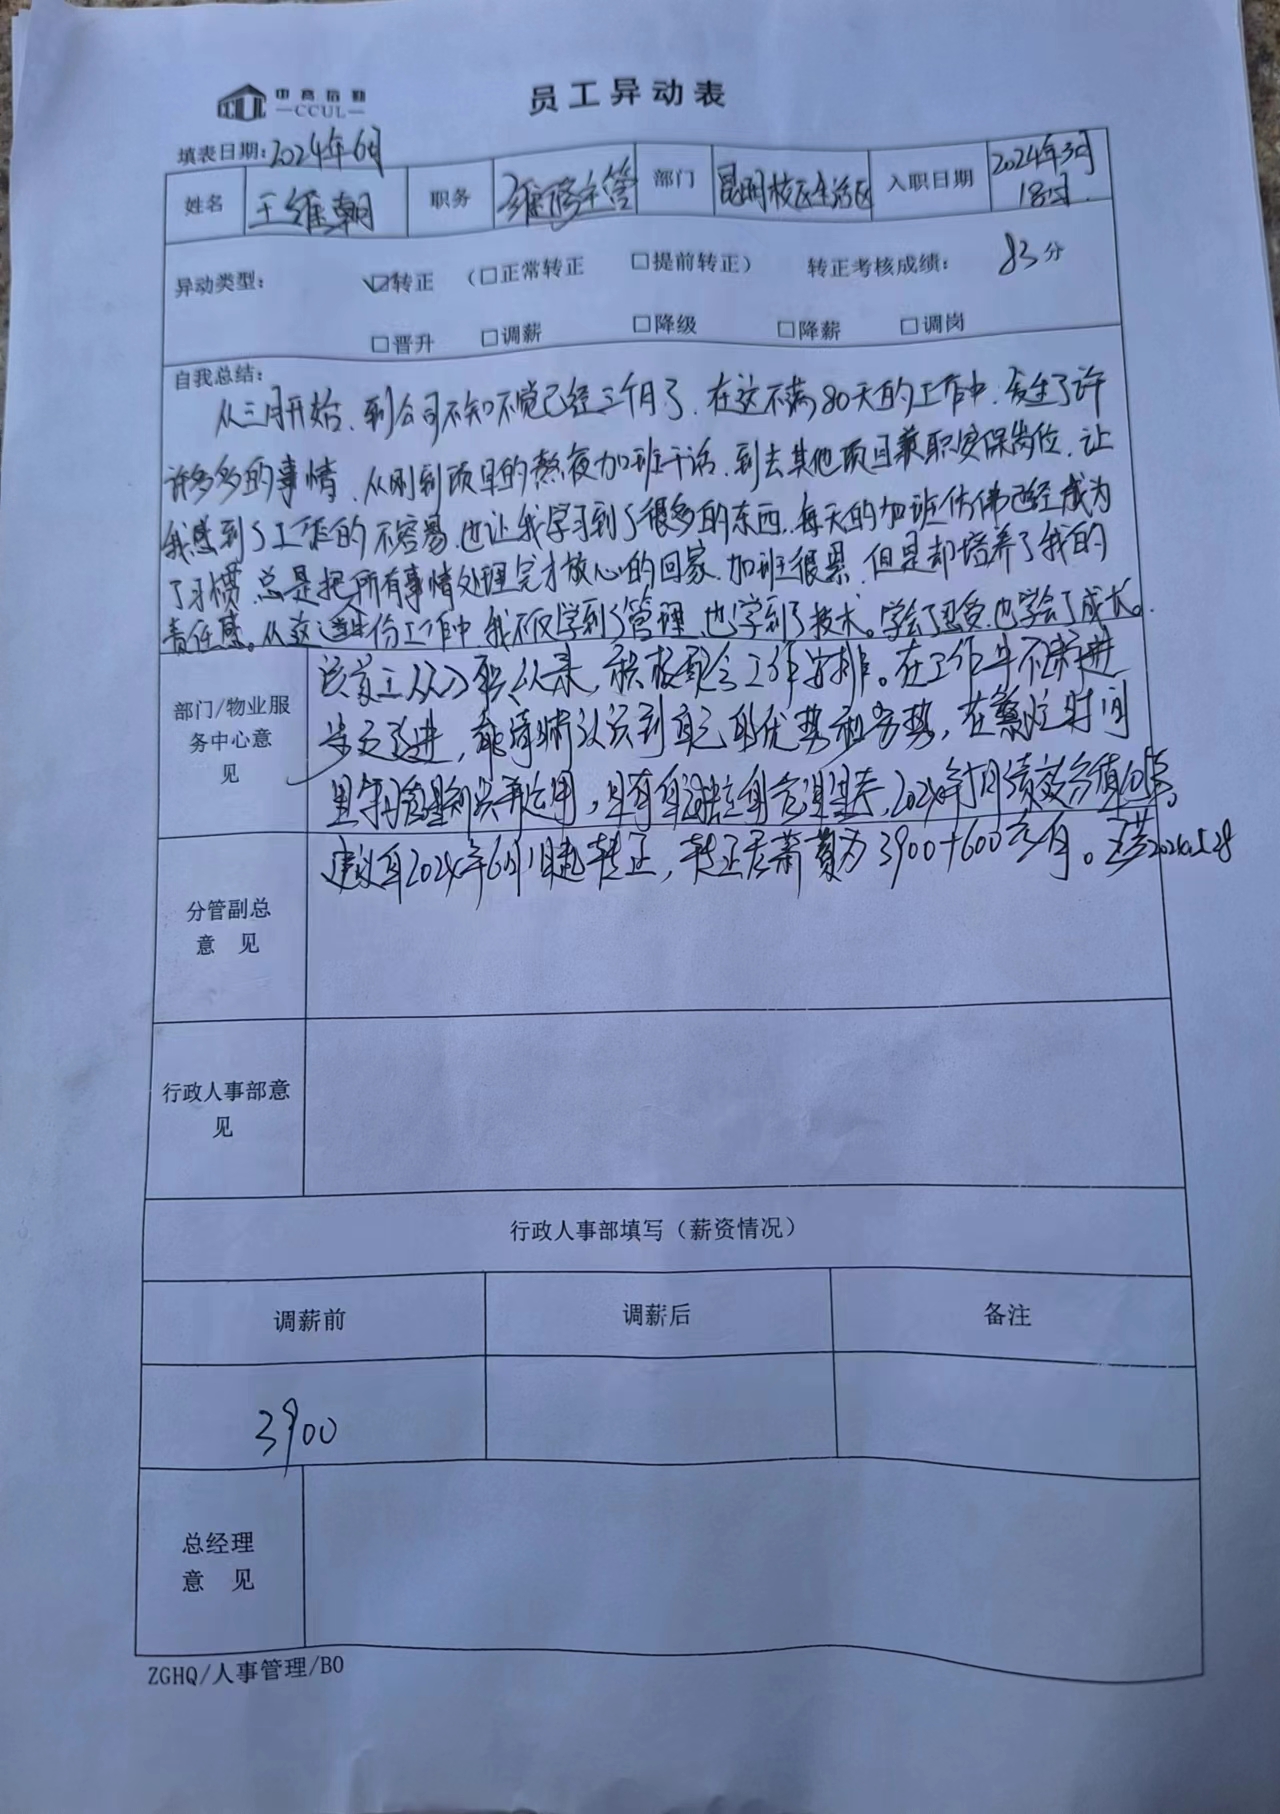 中高后勤
—CCUL—
员工异动表
填表日期:2024年6月
姓名 王维朝 职务 维修主管 部门 昆明校区生活区 入职日期 2024年3月18日.
异动类型: ☑转正 (□正常转正 □提前转正) 转正考核成绩: 83分
□晋升 □调薪 □降级 □降薪 □调岗
自我总结:
从三月开始、到公司不知不觉已经三个月了、在这不满80天的工作中、发生了许
许多多的事情、从刚到项目的熬夜加班干活、到去其他项目兼职安保岗位、让
我感到了工作的不容易、也让我学习到了很多的东西、每天的加班仿佛已经成为
了习惯、总是把所有事情处理完才放心的回家、加班很累、但是却培养了我的
责任感。从这份工作中、我不仅学到了管理、也学到了技术。学会了忍受、也学会了成长。
部门/物业服
务中心意
见
该员工从入职以来，积极配合工作安排。在工作中不断进
步改进，能清晰认识到自己的优势和劣势，在繁忙时间
里学习管理知识并运用，具有独立的管理，2024年5月绩效分值
建议自2024年6月1日起转正，转正后薪资为3900+600
分管副总
意 见
行政人事部意
见
行政人事部填写（薪资情况）
调薪前 调薪后 备注
3900
总经理
意 见
ZGHQ/人事管理/B0